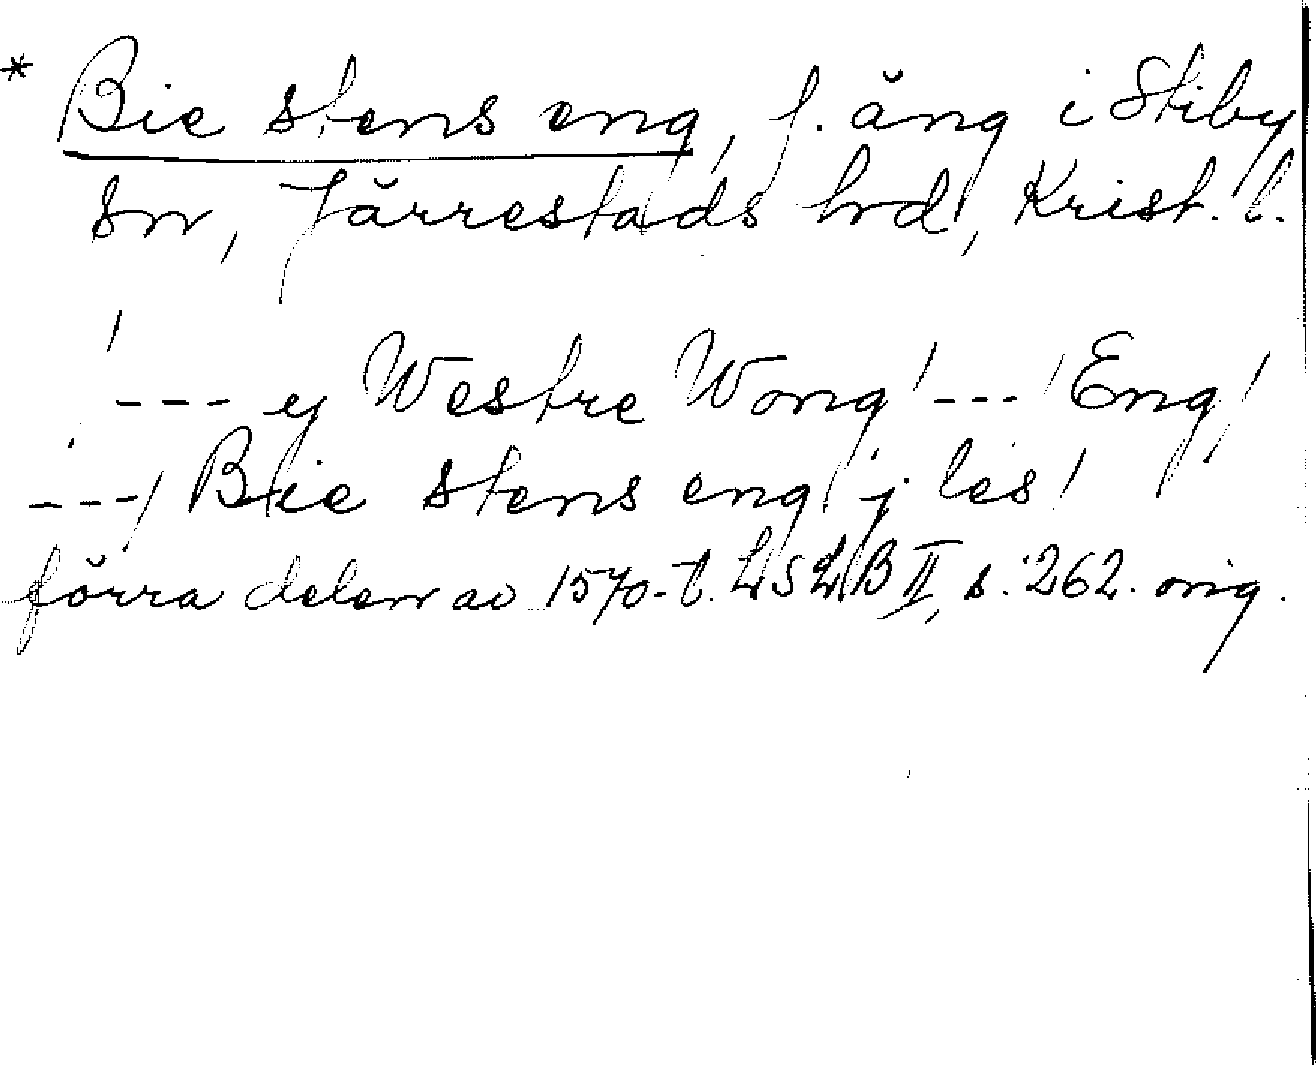 * Bie stens eng, f. äng i Stiby
sn, Järrestads hd, Krist. l.
/--- ij Westre Wong/ --- /Eng/
---/ Bie stens eng / j les/
förra delen av 1570-t. LSLB II, s. 262. orig.